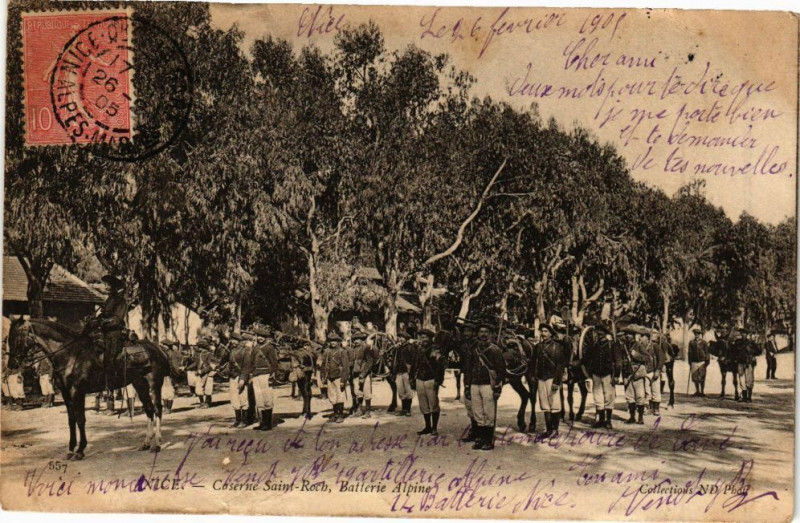 10
NICE
26
05
ALPES-MAR
Nice Le 26 février 1905
Cher ami
deux mots pour te dire que
je me porte bien
et te demander
de tes nouvelles.
J'ai reçu de ton adresse par
557
Voici mon adresse
Artillerie Alpine
Ton ami
NICE. — Caserne Saint-Roch, Batterie Alpine
Collections ND Phot
14 Batterie Nice.